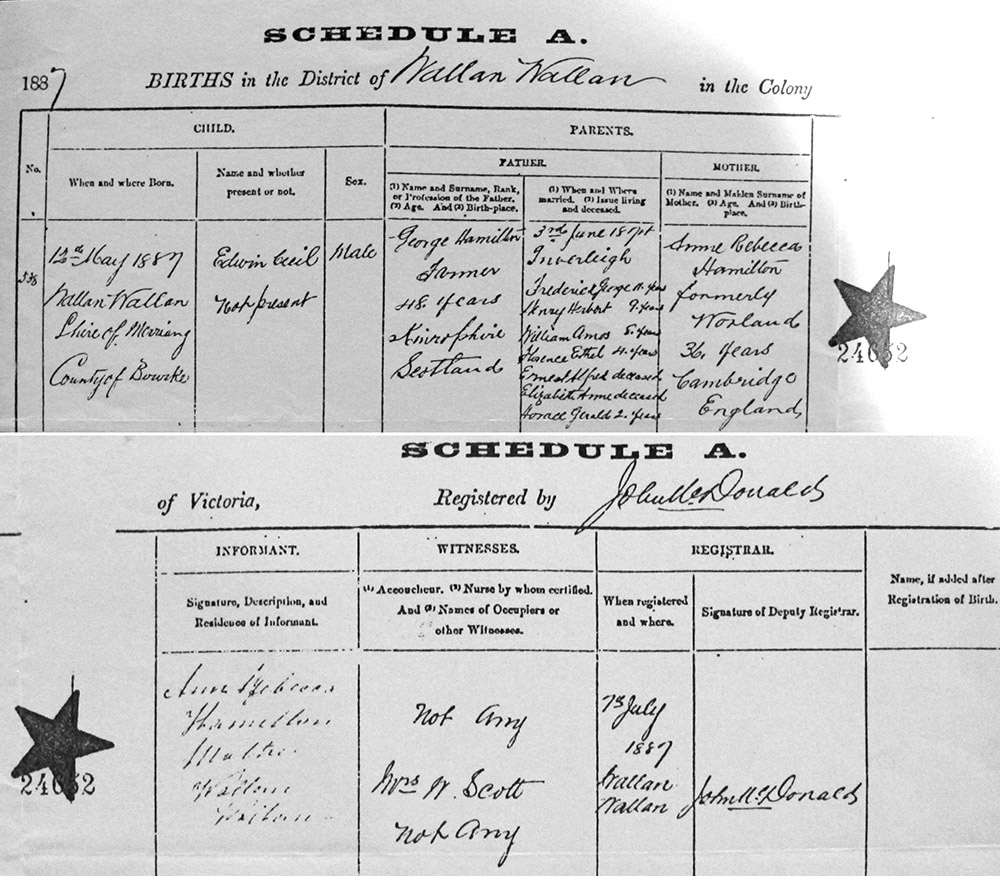 SCHEDULE A.
1887 BIRTHS in the District of Wallan Wallan in the Colony
CHILD. PARENTS.
No. When and where Born. Name and whether present or not. Sex. FATHER. MOTHER.
(1) Name and Surname, Rank, or Profession of the Father. (2) Age. And (3) Birth-place.
(1) When and Where married. (2) Issue living and deceased.
(1) Name and Maiden Surname of Mother. (2) Age. And (3) Birth-place.
538
12th May 1887
Wallan Wallan
Shire of Merriang
County of Bourke
Edwin Cecil
Not present
Male
George Hamilton
Farmer
48 years
Kinrosshire
Scotland
3rd June 1874
Inverleigh
Frederick George 11 years
Henry Herbert 9 years
William Amos 8 years
Florence Ethel 4 years
Ernest Alfred deceased
Elizabeth Anne deceased
Horace Gerald 2 years
Annie Rebecca
Hamilton
formerly
Worland
36 years
Cambridge
England
24652
SCHEDULE A.
of Victoria, Registered by John McDonald
INFORMANT. WITNESSES. REGISTRAR.
Signature, Description, and
Residence of Informant.
(1) Accoucheur. (2) Nurse by whom certified.
And (3) Names of Occupiers or
other Witnesses.
When registered
and where.
Signature of Deputy Registrar.
Name, if added after
Registration of Birth.
Ann Rebecca
Hamilton
Mother
Wallan
Wallan
Not Any
Mrs W. Scott
Not Any
7th July
1887
Wallan
Wallan
John McDonald
24652